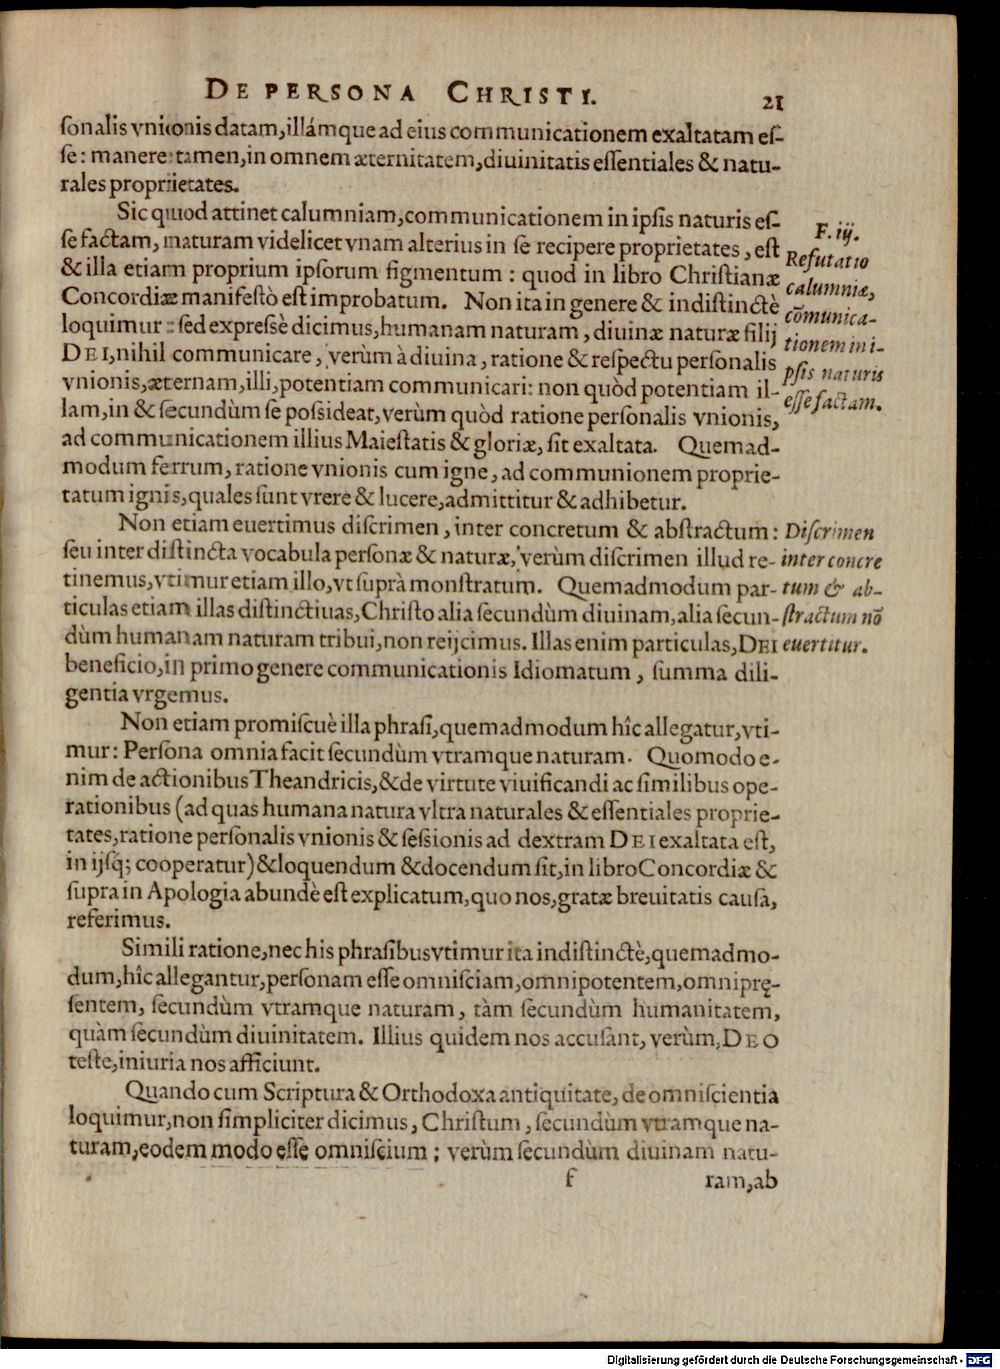 DE PERSONA CHRISTI.
21
ſonalis vniionis datam, illámque ad eius communicationem exaltatam eſ-
ſe: manere tamen, in omnem æternitatem, diuinitatis eſſentiales & natu-
rales propriietates.
Sic quod attinet calumniam, communicationem in ipſis naturis eſ-
ſe factam, naturam videlicet vnam alterius in ſe recipere proprietates, eſt
& illa etiam proprium ipſorum figmentum: quod in libro Chriſtianæ
Concordiæ manifeſtò eſt improbatum. Non ita in genere & indiſtinctè
loquimur: ſed expreſsè dicimus, humanam naturam, diuinæ naturæ filij
DEI, nihil communicare, verùm à diuina, ratione & reſpectu perſonalis
vnionis, æternam, illi, potentiam communicari: non quòd potentiam il-
lam, in & ſecundùm ſe poſsideat, verùm quòd ratione perſonalis vnionis,
ad communicationem illius Maieſtatis & gloriæ, ſit exaltata. Quemad-
modum ferrum, ratione vnionis cum igne, ad communionem proprie-
tatum ignis, quales ſunt vrere & lucere, admittitur & adhibetur.
F. iij.
Refutatio
calumniæ,
cōmunica-
tionem in i-
pſis naturis
eſſe factam.
Non etiam euertimus diſcrimen, inter concretum & abſtractum:
ſeu inter diſtincta vocabula perſonæ & naturæ, verùm diſcrimen illud re-
tinemus, vtimur etiam illo, vt ſuprà monſtratum. Quemadmodum par-
ticulas etiam illas diſtinctiuas, Chriſto alia ſecundùm diuinam, alia ſecun-
dùm humanam naturam tribui, non reijcimus. Illas enim particulas, DEI
beneficio, in primo genere communicationis Idiomatum, ſumma dili-
gentia vrgemus.
Diſcrimen
inter concre
tum & ab-
ſtractum nō
euertitur.
Non etiam promiſcuè illa phraſi, quemadmodum hîc allegatur, vti-
mur: Perſona omnia facit ſecundùm vtramque naturam. Quomodo e-
nim de actionibus Theandricis, & de virtute viuificandi ac ſimilibus ope-
rationibus (ad quas humana natura vltra naturales & eſſentiales proprie-
tates, ratione perſonalis vnionis & ſeſsionis ad dextram DEI exaltata eſt,
in ijſq; cooperatur) & loquendum & docendum ſit, in libro Concordiæ &
ſupra in Apologia abundè eſt explicatum, quo nos, gratæ breuitatis cauſa,
referimus.
Simili ratione, nec his phraſibus vtimur ita indiſtinctè, quemadmo-
dum, hîc allegantur, perſonam eſſe omniſciam, omnipotentem, omniprę-
ſentem, ſecundùm vtramque naturam, tàm ſecundùm humanitatem,
quàm ſecundùm diuinitatem. Illius quidem nos accuſant, verùm, DEO
teſte, iniuria nos afficiunt.
Quando cum Scriptura & Orthodoxa antiquitate, de omniſcientia
loquimur, non ſimpliciter dicimus, Chriſtum, ſecundùm vtramque na-
turam, eodem modo eſſe omniſcium; verùm ſecundùm diuinam natu-
f
ram, ab
Digitalisierung gefördert durch die Deutsche Forschungsgemeinschaft - DFG